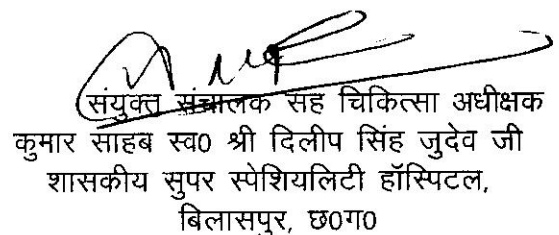 संयुक्त संचालक सह चिकित्सा अधीक्षक
कुमार साहब स्व0 श्री दिलीप सिंह जुदेव जी
शासकीय सुपर स्पेशियलिटी हॉस्पिटल,
बिलासपुर, छ0ग0